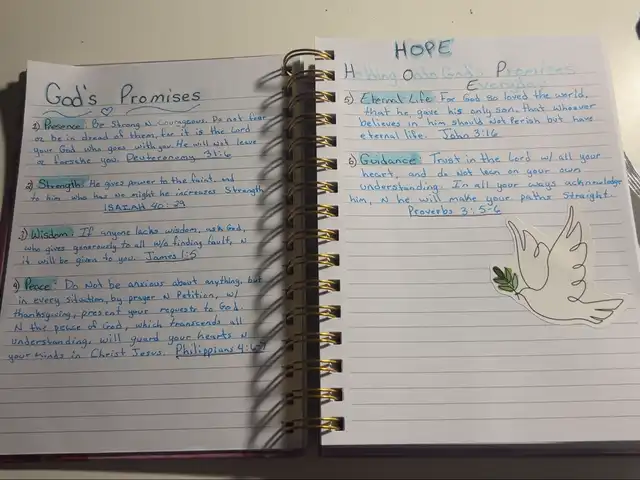 God's Promises
1) Presence: Be Strong N Courageous. Do not fear
or be in dread of them, for it is the Lord
your God who goes with you. He will not leave
or forsake you. Deuteronomy 31:6
2) Strength: He gives power to the faint, and
to him who has no might he increases strength
ISAIAH 40:29
3) Wisdom: If anyone lacks wisdom, ask God,
who gives generously to all w/o finding fault, N
it will be given to you. James 1:5
4) Peace: Do Not be anxious about anything, but
in every situation, by prayer N Petition, w/
thanksgiving, present your requests to God.
N the peace of God, which transcends all
understanding, will guard your hearts N
your minds in Christ Jesus. Philippians 4:6-7
HOPE
Holding Onto God's Promises
Everyday
5) Eternal Life: For God so loved the world,
that he gave his only son, that whoever
believes in him should Not Perish but have
eternal life. John 3:16
6) Guidance: Trust in the Lord w/ all your
heart, and do Not lean on your own
understanding. In all your ways acknowledge
him, N he will make your paths Straight.
Proverbs 3:5-6